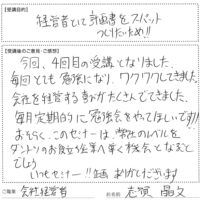 【受講目的】
経営者として計画書をズバット
つくりたいため!!
【受講後のご意見・ご感想】
今回、4回目の受講となりました。
毎回とても勉強になり、ワクワクしてきました。
会社を経営する事がたくさんでてきました。
毎月定期的に勉強会をやってほしいです!!
おそらく、このセミナーは、弊社のレベルを
ダントツのお役立ち企業の導く機会となること
でしょう
いつもセミナー!!企画ありがとうございます
ご職業 会社経営者
お名前 志賀 晶文